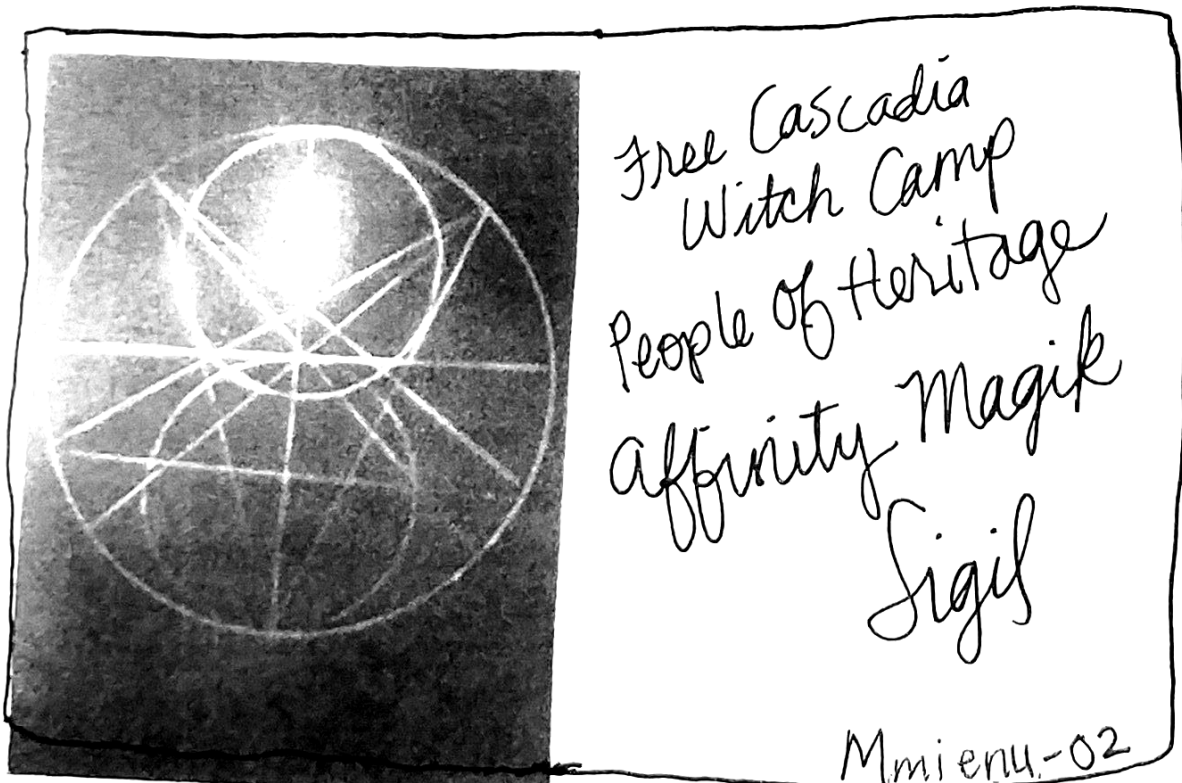 Free Cascadia
Witch Camp
People Of Heritage
Affinity Magik
Sigil
Mmienu-02